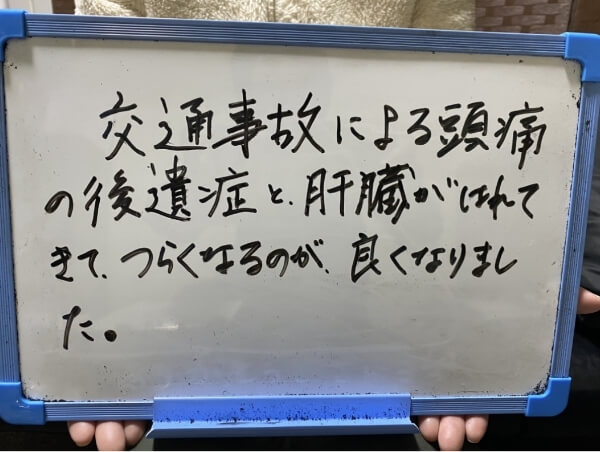 交通事故による頭痛
の後遺症と、肝臓がはれて
きて、つらくなるのが、良くなりまし
た。